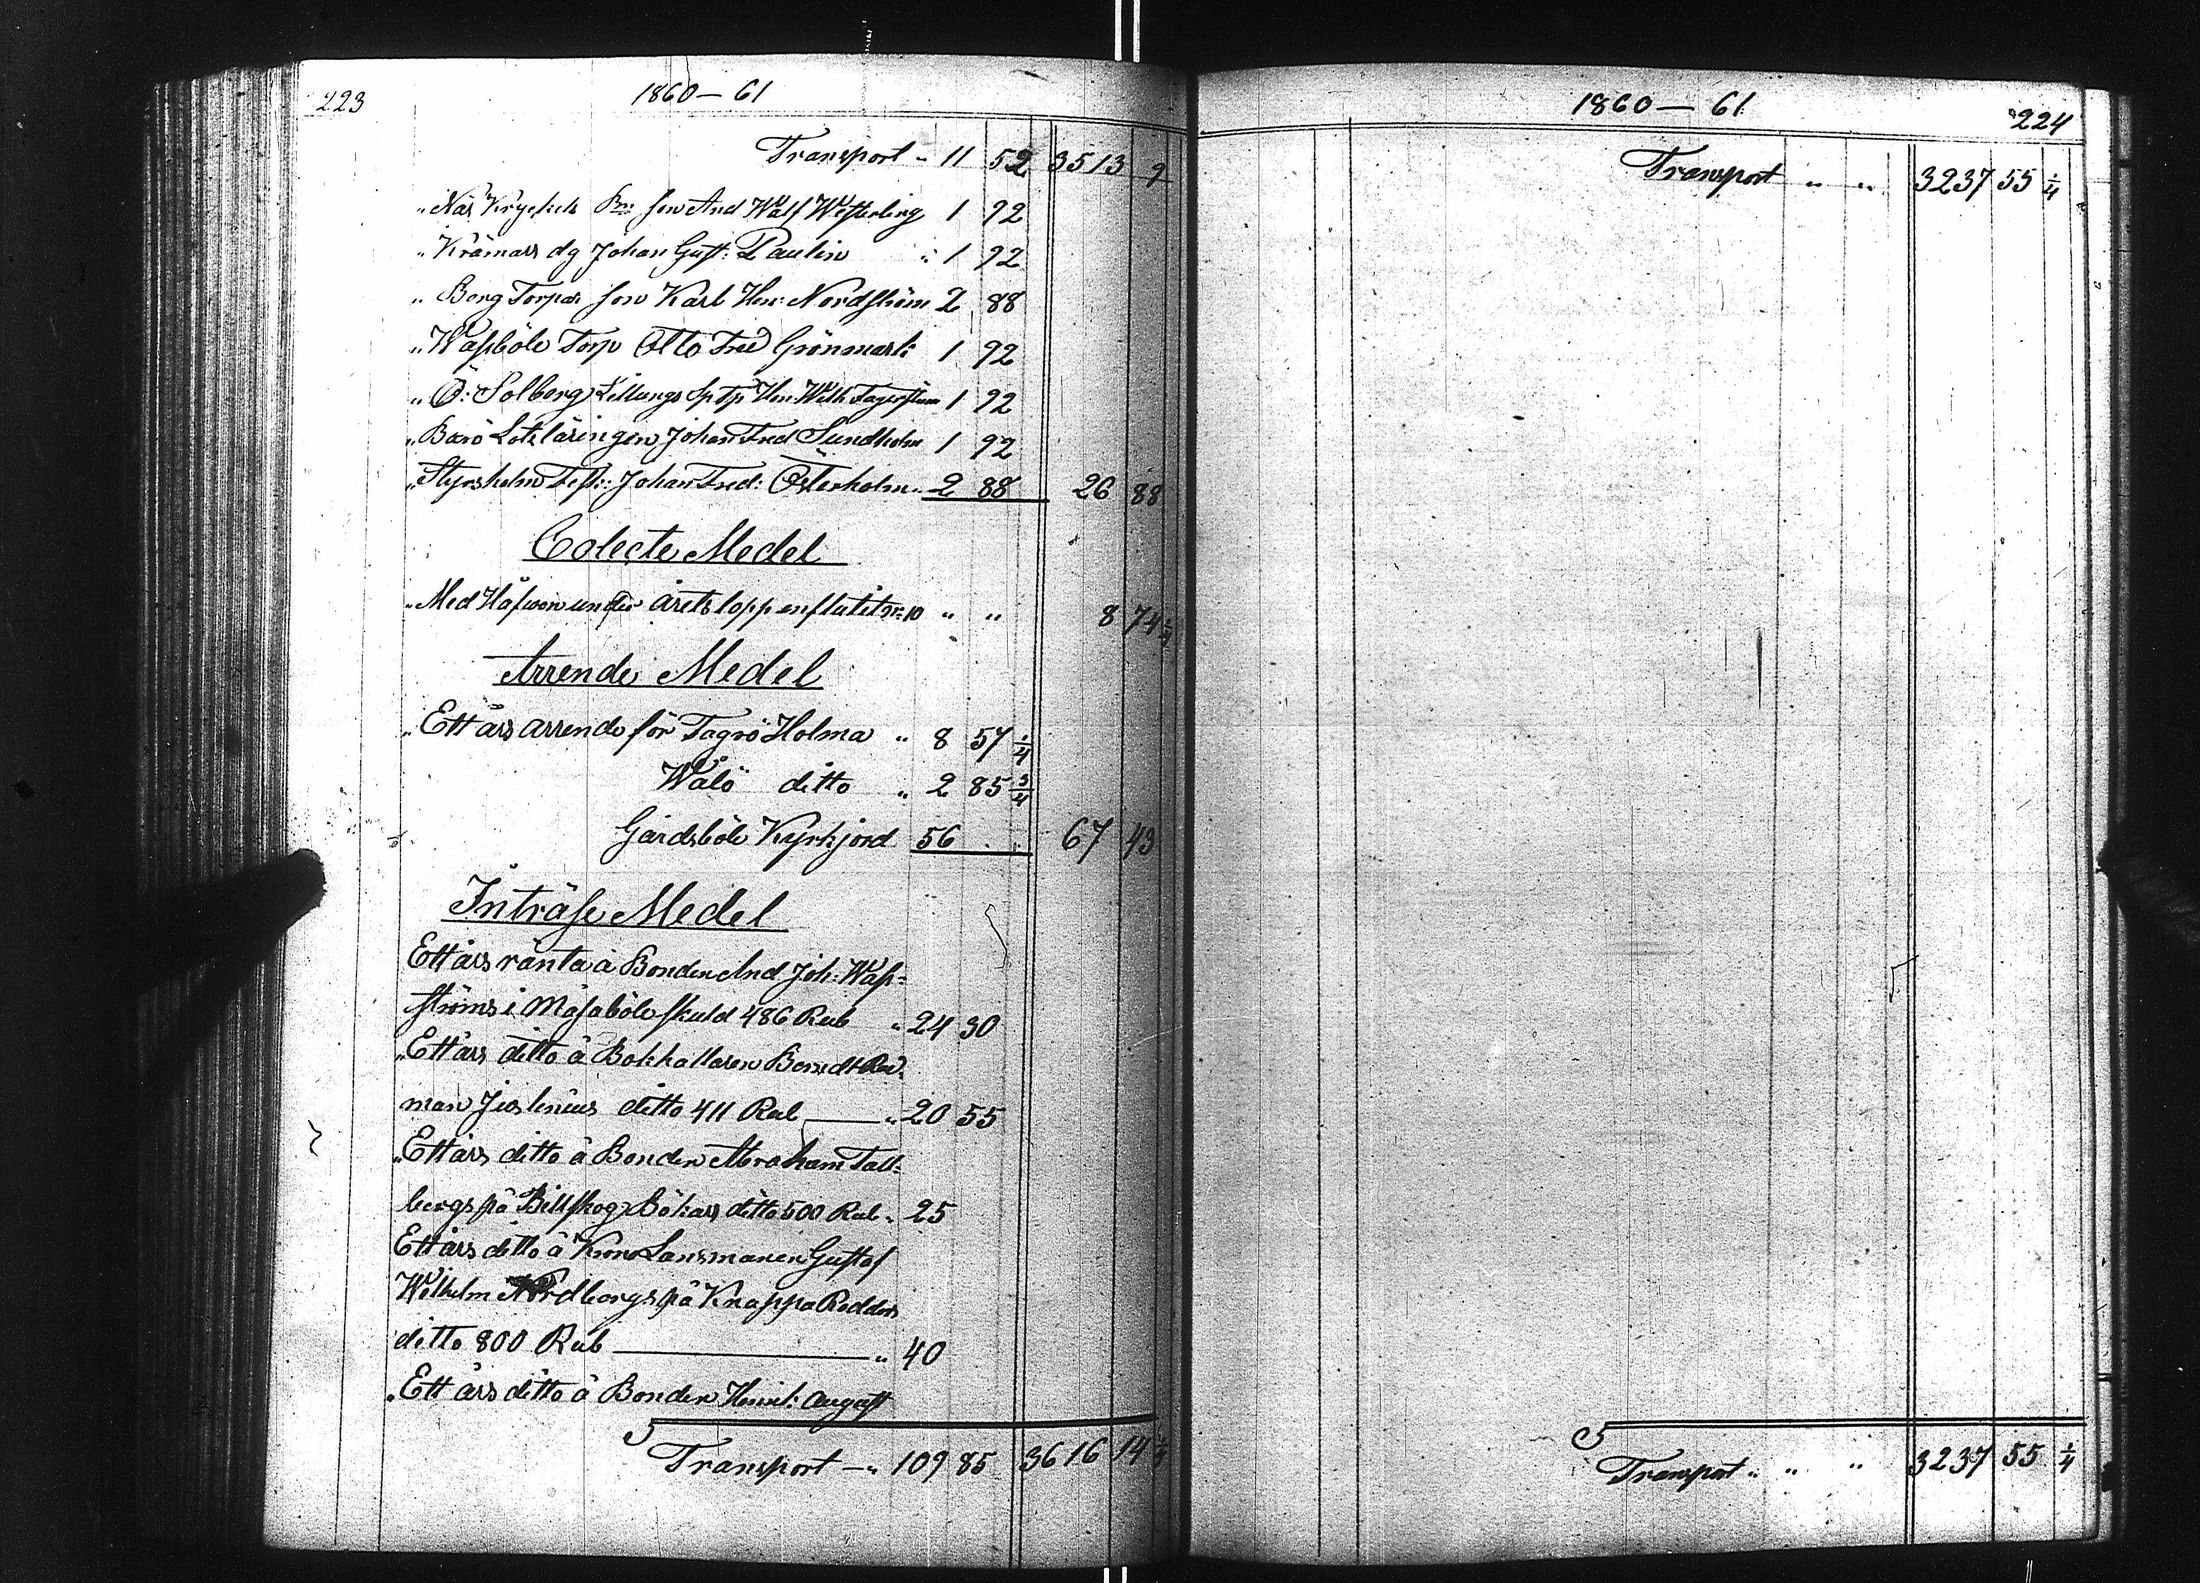 223
1860 — 61
Transport „ 11 52 3513 9
„ Näs Kryckels Bn son And Walf Westerling 1 92
„ Krämars dg Johan Gust: Paulin „ 1 92
„ Berg Torpar son Karl Hen: Nordström 2 88
„ Wässböle Torp Otto Fred Grönmark: 1 92
„ Ö: Solberg Killungs Sp Tp Hen: Wilh Fagerström 1 92
„ Barö Lotsläringen Johan Fred Sundholm 1 92
„ Styrsholm Johan Fred: Österholm „ 2 88 26 88
Colecte Medel
„ Med Håfwon under årets lopp influtit N: 10 „ „ 8 74 1/4
Arrende Medel
„ Ett års arrende för Tagrö Holma „ 8 57 1/4
Walö ditto „ 2 85 3/4
Gårdsböle Kyrkjord 56 „ „ 67 43
Inträsse Medel
Ett års ränta å Bonden And Joh: Wass-
ströms i Måsaböle skuld 486 Rub „ 24 30
„ Ett års ditto å Bokhallaren Berndt Ro-
man Juslenius ditto 411 Rub — „ 20 55
„ Ett års ditto å Bonden Abraham Tall-
bergs på Billskog Bökars ditto 500 Rub „ 25
Ett års ditto å Krono Lansmanen Gustaf
Wilhelm Nordbergs på Knappa Rodders
ditto 800 Rub — „ 40
„ Ett års ditto å Bonden Henrik: August
Transport — „ 109 85 3616 14 1/4
1860 — 61
224
Transport „ „ 3237 55 1/4
Transport „ „ „ 3237 55 1/4